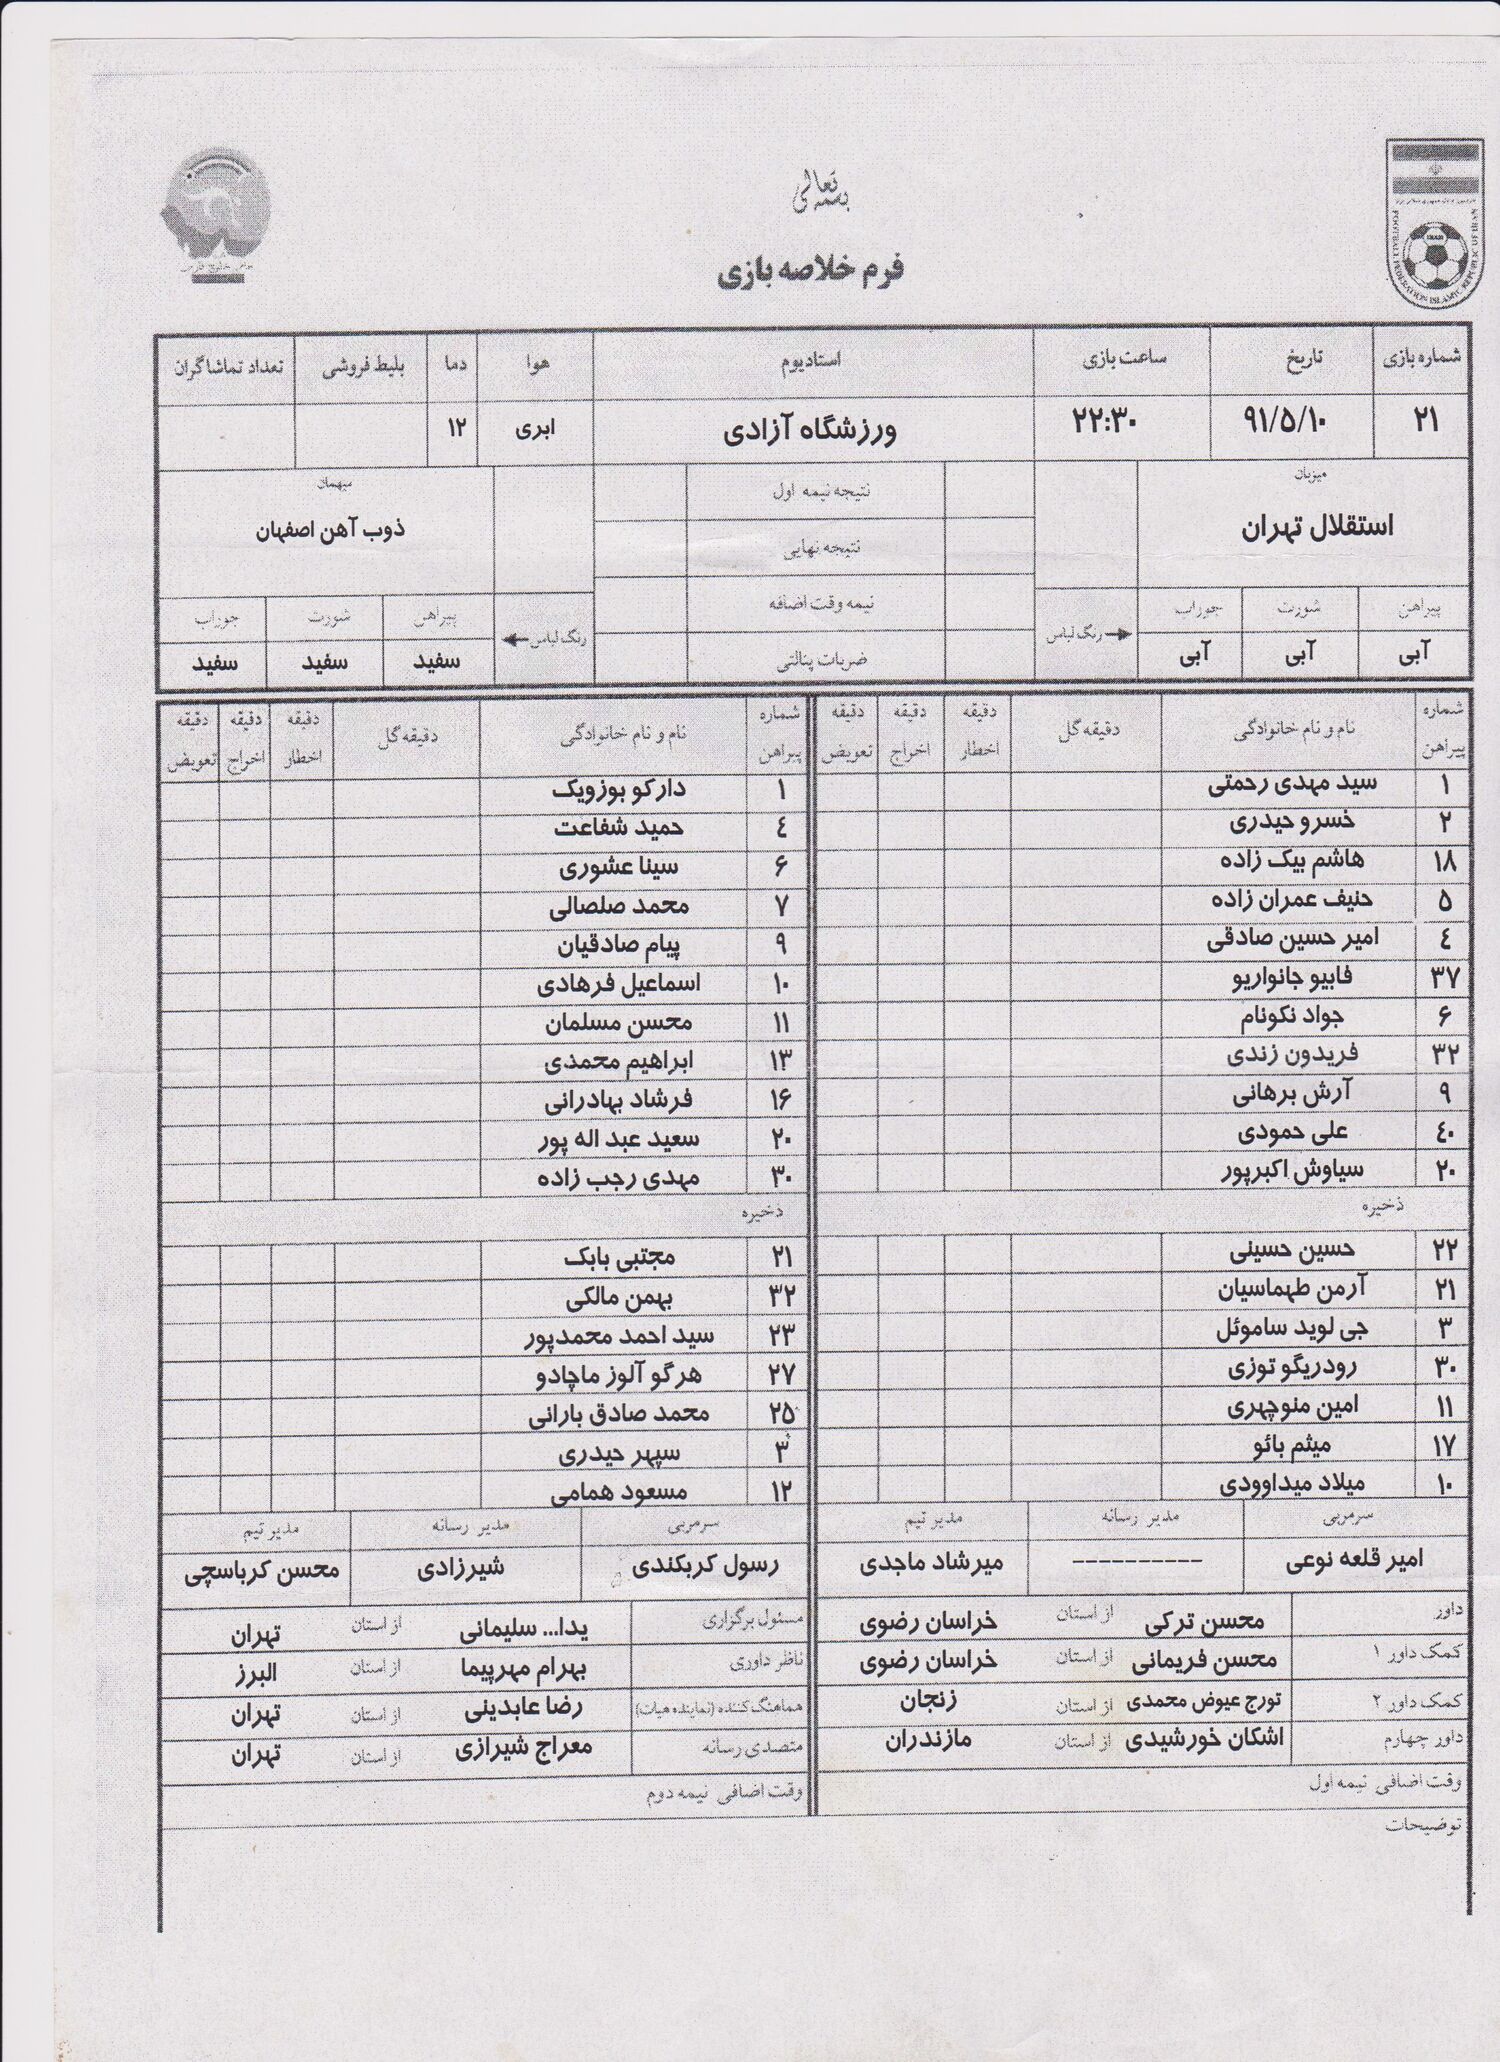 بسمه تعالی
فرم خلاصه بازی
FOOTBALL FEDERATION ISLAMIC REPUBLIC OF IRAN
شماره بازی تاریخ ساعت بازی استادیوم هوا دما بلیط فروشی تعداد تماشاگران
۲۱ ۹۱/۵/۱۰ ۲۲:۳۰ ورزشگاه آزادی ابری ۱۲
میزبان
استقلال تهران
پیراهن شورت جوراب
رنگ لباس
آبی آبی آبی
نتیجه نیمه اول
نتیجه نهایی
نیمه وقت اضافه
ضربات پنالتی
میهمان
ذوب آهن اصفهان
رنگ لباس
پیراهن شورت جوراب
سفید سفید سفید
شماره پیراهن نام و نام خانوادگی دقیقه گل دقیقه اخطار دقیقه اخراج دقیقه تعویض
۱ سید مهدی رحمتی
۲ خسرو حیدری
۱۸ هاشم بیک زاده
۵ حنیف عمران زاده
٤ امیر حسین صادقی
۳۷ فابیو جانواریو
۶ جواد نکونام
۳۲ فریدون زندی
۹ آرش برهانی
٤۰ علی حمودی
۲۰ سیاوش اکبرپور
ذخیره
۲۲ حسین حسینی
۲۱ آرمن طهماسیان
۳ جی لوید ساموئل
۳۰ رودریگو توزی
۱۱ امین منوچهری
۱۷ میثم بائو
۱۰ میلاد میداوودی
سرمربی مدیر رسانه مدیر تیم
امیر قلعه نوعی ---------- میرشاد ماجدی
داور محسن ترکی از استان خراسان رضوی
کمک داور ۱ محسن فریمانی از استان خراسان رضوی
کمک داور ۲ تورج عیوض محمدی از استان زنجان
داور چهارم اشکان خورشیدی از استان مازندران
وقت اضافی نیمه اول
شماره پیراهن نام و نام خانوادگی دقیقه گل دقیقه اخطار دقیقه اخراج دقیقه تعویض
۱ دارکو بوزویک
٤ حمید شفاعت
۶ سینا عشوری
۷ محمد صلصالی
۹ پیام صادقیان
۱۰ اسماعیل فرهادی
۱۱ محسن مسلمان
۱۳ ابراهیم محمدی
۱۶ فرشاد بهادرانی
۲۰ سعید عبد اله پور
۳۰ مهدی رجب زاده
ذخیره
۲۱ مجتبی بابک
۳۲ بهمن مالکی
۲۳ سید احمد محمدپور
۲۷ هرگو آلوز ماچادو
۲۵ محمد صادق بارانی
۳ سپهر حیدری
۱۲ مسعود همامی
سرمربی مدیر رسانه مدیر تیم
رسول کربکندی شیرزادی محسن کرباسچی
مسئول برگزاری یدا... سلیمانی از استان تهران
ناظر داوری بهرام مهرپیما از استان البرز
هماهنگ کننده (نماینده هیات) رضا عابدینی از استان تهران
متصدی رسانه معراج شیرازی از استان تهران
وقت اضافی نیمه دوم
توضیحات